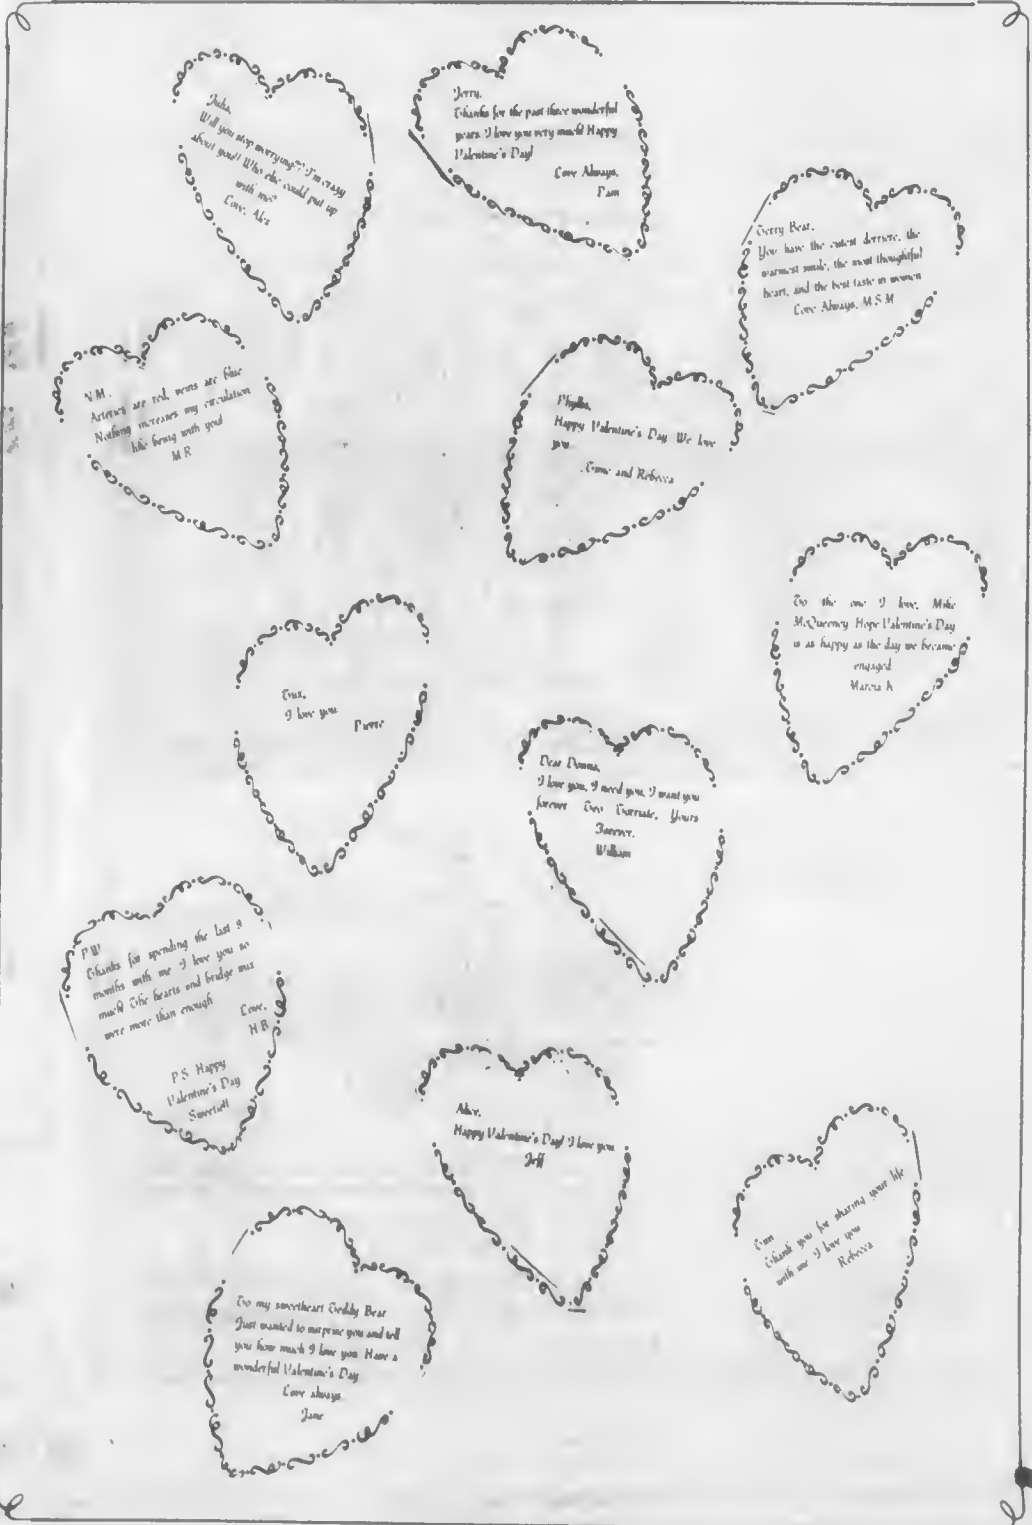 Julia,
Will you stop worrying?? I'm crazy
about you!! Who else could put up
with me?
Love, Alex
Jerry,
Thanks for the past three wonderful
years. I love you very much! Happy
Valentine's Day!
Love Always,
Pam
Terry Bear,
You have the cutest derriere, the
warmest smile, the most thoughtful
heart, and the best taste in women
Love Always, M.S.M.
N.M.,
Arteries are red, veins are blue
Nothing increases my circulation
like being with you!
M.R.
Phyllis,
Happy Valentine's Day. We love
you.
and Rebecca
To the one I love, Mike
McQueeney. Hope Valentine's Day
is as happy as the day we became
engaged.
Marcia K.
I love you
Pierre
Dear Donna,
I love you, I need you, I want you
forever. Teo Torriate, Yours
Forever,
William
P.W.
Thanks for spending the last 9
months with me. I love you so
much! The hearts and bridge mix
were more than enough.
Love,
H.B.
P.S. Happy
Valentine's Day
Sweetie!!
Alice,
Happy Valentine's Day! I love you
Jeff
Tim
Thank you for sharing your life
with me. I love you
Rebecca
To my sweetheart Teddy Bear
Just wanted to surprise you and tell
you how much I love you. Have a
wonderful Valentine's Day
Love always,
Jane